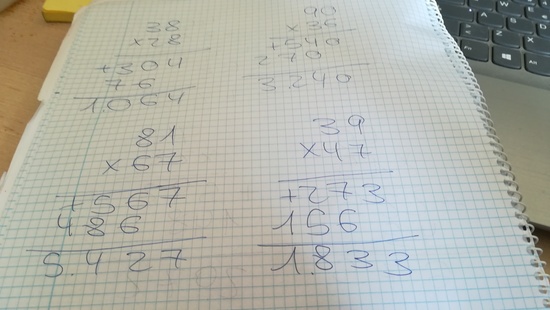 38
×28
+304
76
1.064
90
×36
+540
270
3.240
81
×67
+567
486
5.427
39
×47
+273
156
1.833